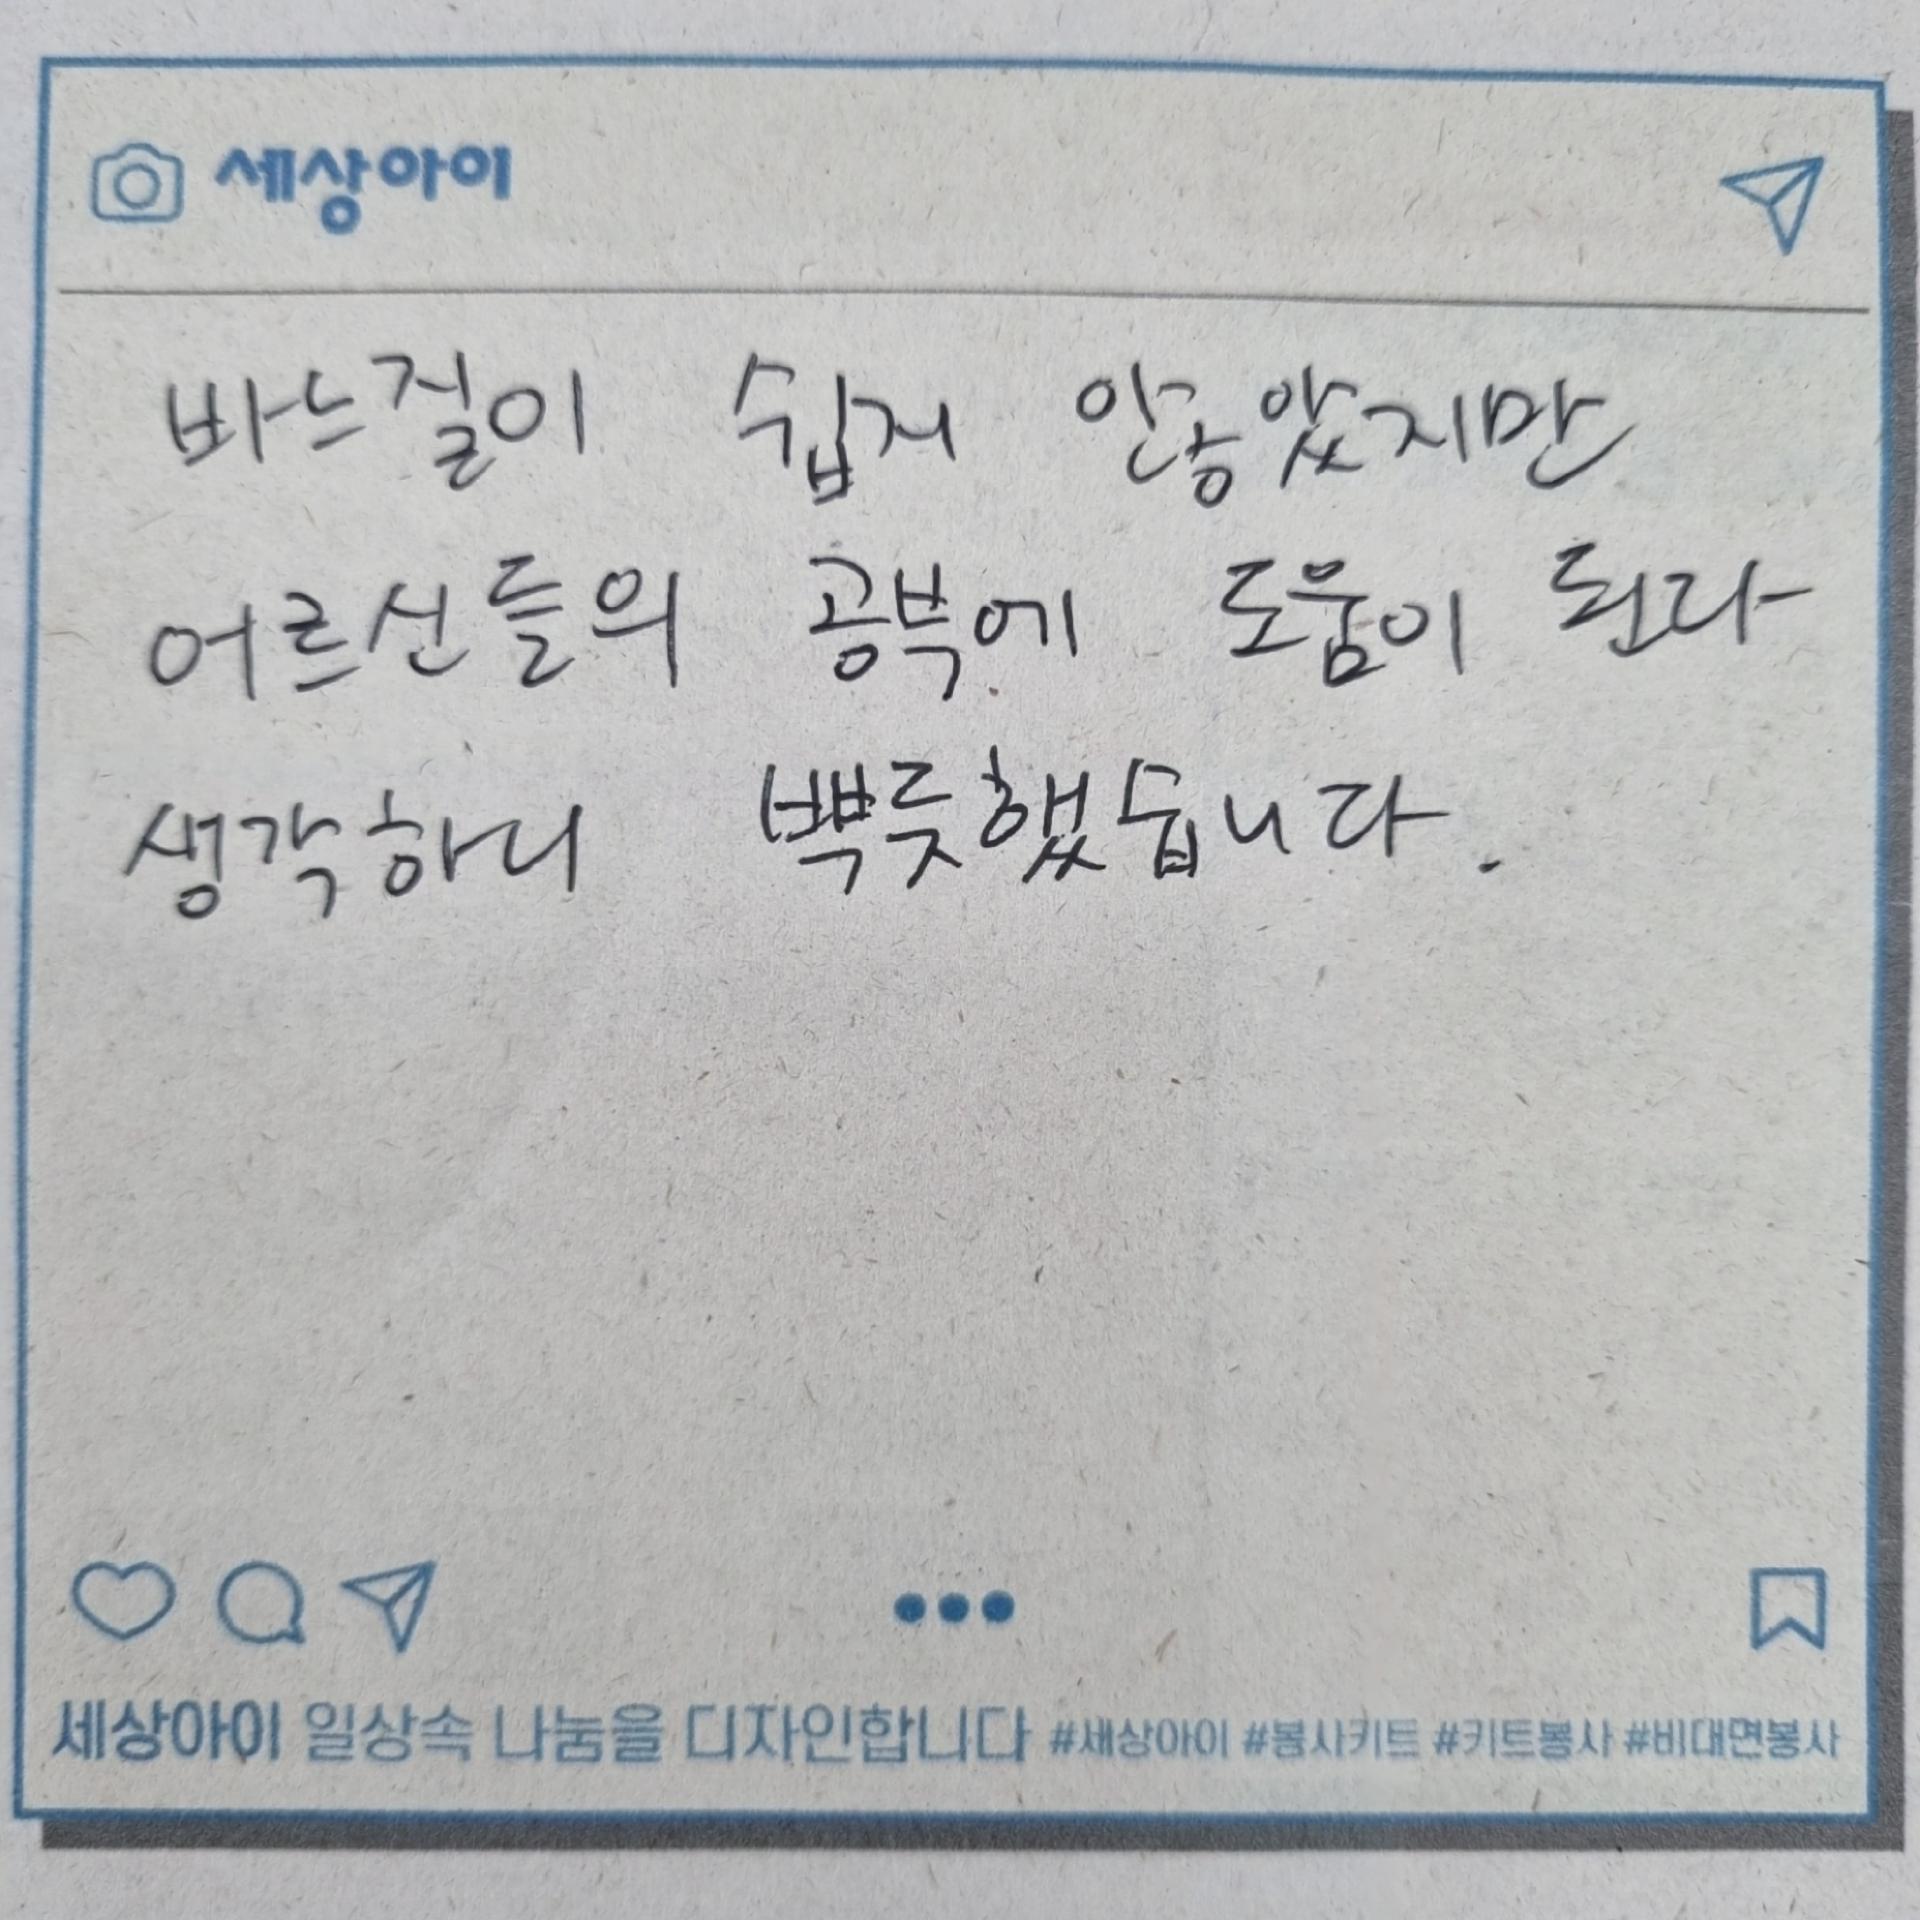 세상아이
바느질이 쉽지 않았지만
어르신들의 공부에 도움이 된다
생각하니 뿌듯했습니다.
세상아이 일상속 나눔을 디자인합니다 #세상아이 #봉사키트 #키트봉사 #비대면봉사